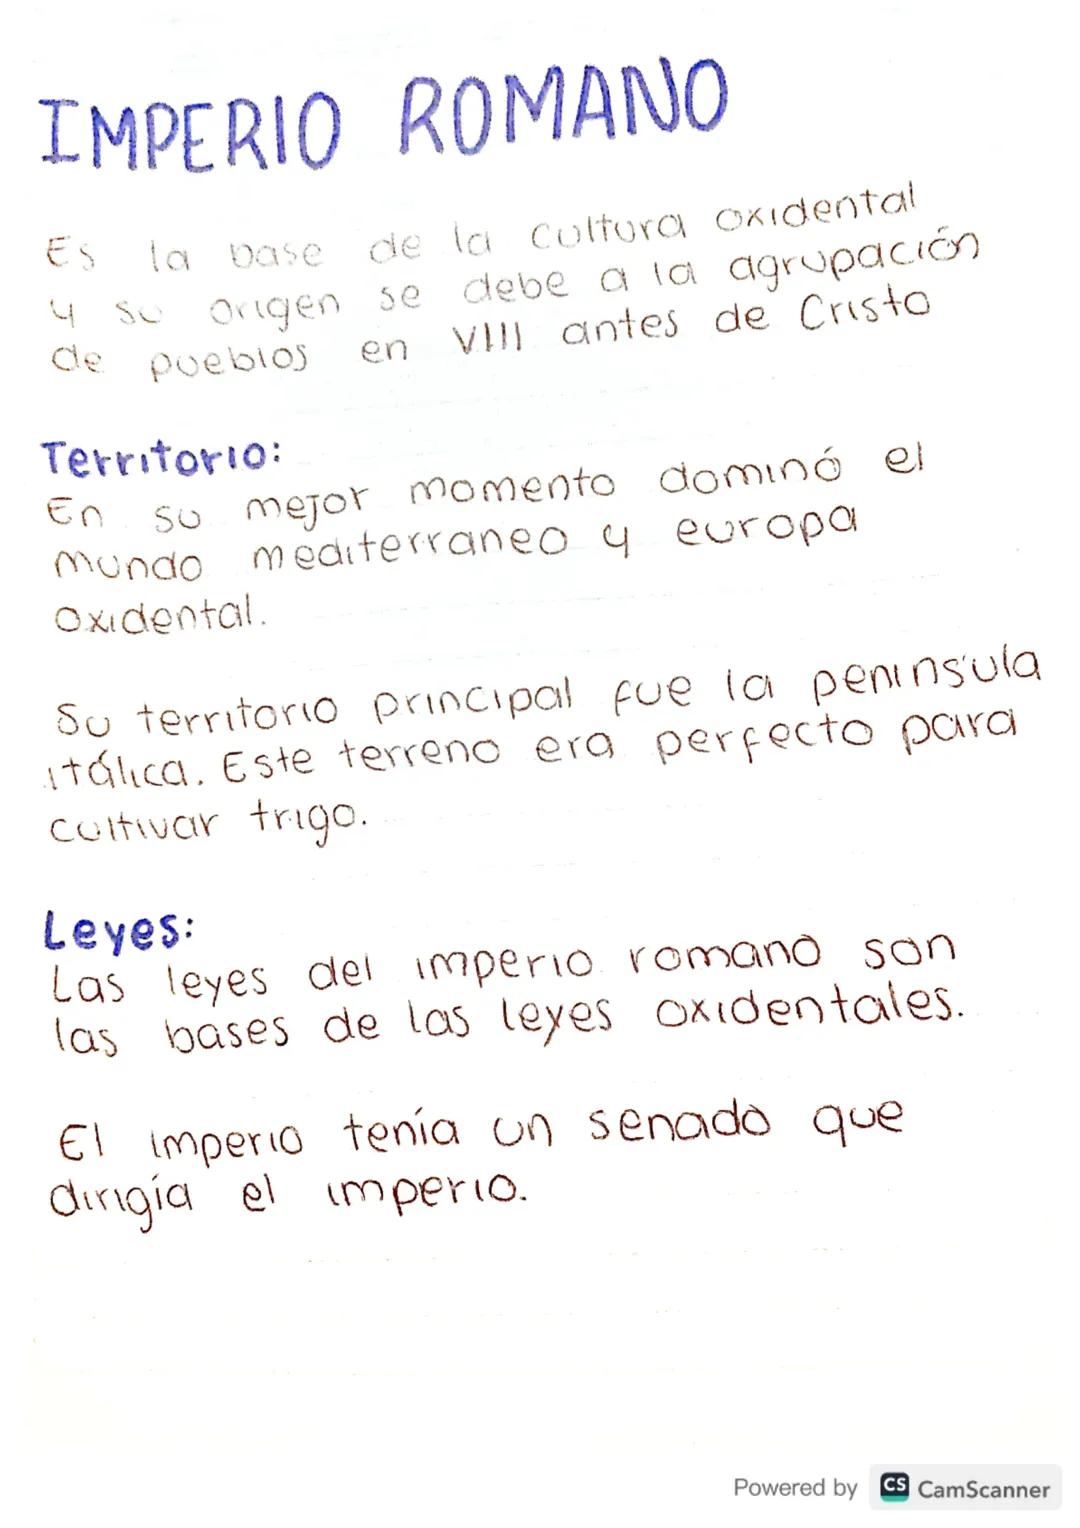 IMPERIO ROMANO
Es la base de la cultura oxidental
y su origen se debe a la agrupación
de pueblos en VIII antes de Cristo
Territorio:
En su mejor momento dominó el
mundo mediterraneo y europa
oxidental.
Su territorio principal fue la peninsula
itálica. Este terreno era perfecto para
cultivar trigo.
Leyes:
Las leyes del imperio romano son
las bases de las leyes oxidentales.
El imperio tenía un senado que
dirigía el imperio.
Powered by CS CamScanner